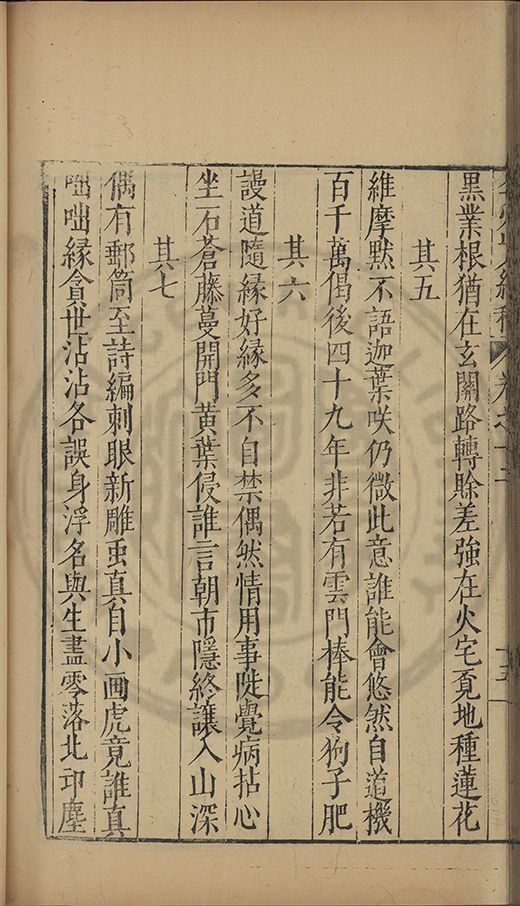 黒業根猶在玄關路轉賖差強在火宅覔地種蓮花
其五
維摩默不語迦葉咲仍微此意誰能會悠然自道機
百千萬偈後四十九年非若有雲門棒能令狗子肥
其六
謾道隨緣好緣多不自禁偶然情用事陡覺病拈心
坐石蒼藤蔓開門黃葉侵誰言朝市隱終讓入山深
其七
偶有郵筒至詩編刺眼新雕䖝真自小画虎竟誰真
咄咄緣貪世沾沾各誤身浮名與生盡零落北邙塵